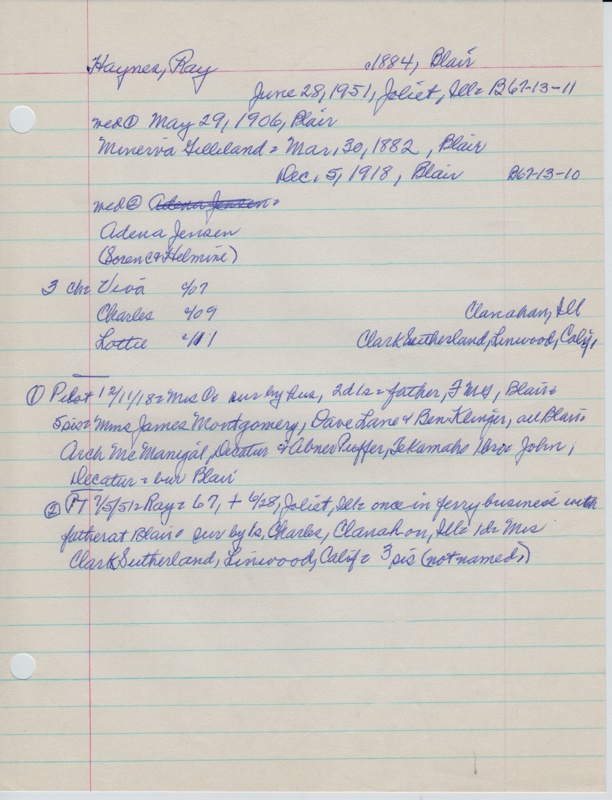 Haynes, Ray c1884, Blair
June 28, 1951, Joliet, Ill= B67-13-11
wed① May 29, 1906, Blair
Minerva Gilliland = Mar, 30, 1882, Blair
Dec. 5, 1918, Blair B67-13-10
wed② Adena Jensen =
Adena Jensen
(Soren & Helmine)
3 ch= Viva c/07
Charles c/09 Clanahan, Ill
Lottie c/11 Clark Sutherland, Linwood, Calif,
① Pilot 12/11/18= Mrs sur by hus, 2ds= father, Blair=
5 sis= Mmes James Montgomery, Dave Lane & Ben Klinger, all Blair=
Arch McManigal, Decatur & Abner Puffer, Tekamah= bro= John,
Decatur = bur Blair
② PT 7/5/51= Ray= 67, + 6/28, Joliet, Ill= once in ferry business with
father at Blair= sur by 1s, Charles, Clanahan, Ill= 1d= Mrs
Clark Sutherland, Linwood, Calif= 3 sis (not named)